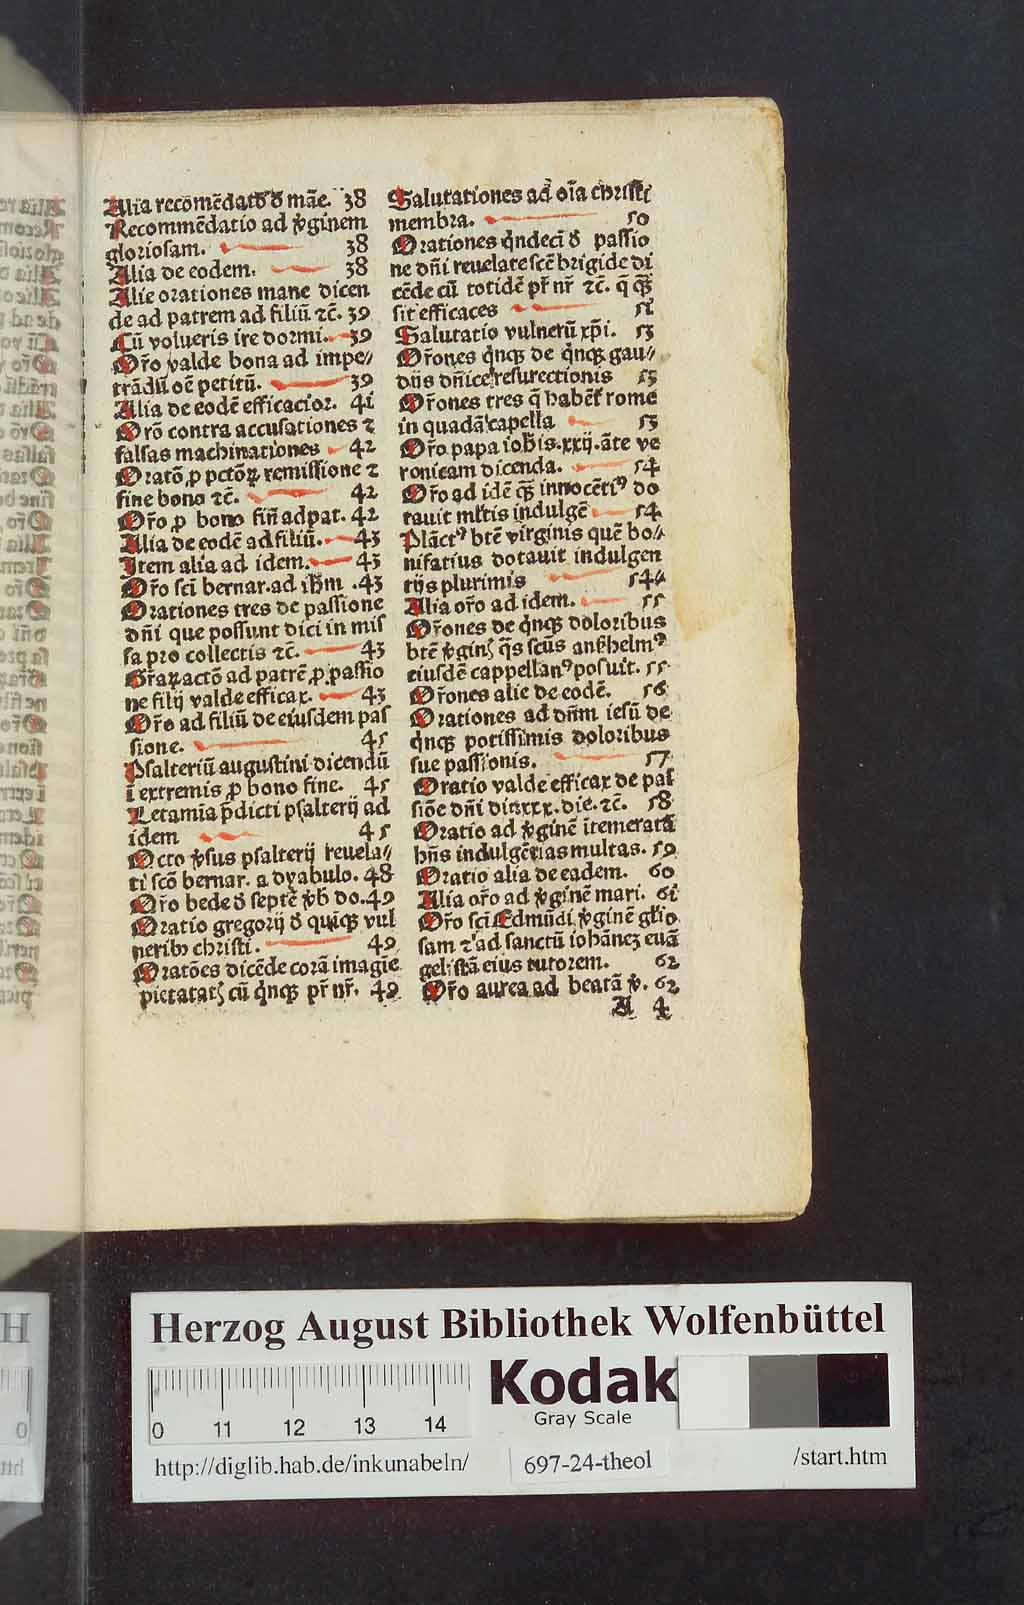 Alia recōmēdatō ꝺ̄ mãe. 38
Recommēdatio ad v̓ginem
gloriosam. 38
Alia de eodem. 38
Alie orationes mane dicen
de ad patrem ad filiū ⁊c̄. 39
Cū volueris ire dormi. 39
Or̄o valde bona ad impe⸗
trādū oē petitū. 39
Alia de eodē efficacior. 41
Orō contra accusationes ⁊
falsas machinationes 42
Oratō ꝓ pctōꝝ remissione ⁊
fine bono ⁊c̄. 42
Or̄o ꝓ bono fin̄ ad pat. 42
Alia de eodē ad filiū. 43
Item alia ad idem. 43
Or̄o sci̅ bernar. ad ihm̄. 43
Orationes tres de passione
dn̄i que possunt dici in mis
sa pro collectis ⁊c̄. 43
Gr̄aꝝ actō ad patrē ꝓ passio
ne filij valde efficax. 43
Or̄o ad filiū de eiusdem pas
sione. 45
Psalteriū augustini dicendū
ī extremis ꝓ bono fine. 45
Letamīa p̄dicti psalterij ad
idem 45
Octo v̓sus psalterij reuela⸗
ti scō bernar. a dyabulo. 48
Or̄o bede ꝺ̄ septē v̓b̄ do. 49
Oratio gregorij ꝺ̄ quiqꝫ vul
neribꝰ christi. 49
Oratōes dicēde corā imagīe
pietatatꝭ cū qͥnqꝫ pr̄ nr̄. 49
Salutationes ad oīa christi
membra. 50
Orationes qͥndecī ꝺ̄ passio
ne dn̄i reuelate scē brigide di
cēde cū totidē pr̄ nr̄ ⁊c̄. q̄ qꝫ
sit efficaces 51
Salutatio vulnerū xp̄i. 53
Or̄ones qͥnqꝫ de qͥnqꝫ gau⸗
diis dn̄ice resurectionis 53
Or̄ones tres q̄ habēt̄ rome
in quadā capella 53
Or̄o papa ioh̄is. xxij. āte ve
ronicam dicenda. 54
Or̄o ad idē qꝫ innocētiꝰ do
tauit ml̄tis indulgē 54
Plāctꝰ btē virginis quē bo⸗
nifatius dotauit indulgen
tijs plurimis 54
Alia or̄o ad idem. 55
Or̄ones de qͥnqꝫ doloribus
btē v̓ginꝭ q̄s scūs anßhelmꝰ
eiusdē cappellanꝰ posuit. 55
Or̄ones alie de eodē. 56
Orationes ad dn̄m iesū de
qͥnqꝫ potissimis doloribus
sue passionis. 57
Oratio valde efficax de pas
siōe dn̄i dit xxx. die. ⁊c̄. 58
Oratio ad v̓ginē ītemeratā
hn̄s indulgētias multas. 59
Oratio alia de eadem. 60
Alia or̄o ad v̓ginē mari. 61
Or̄o sci̅ Edmūdi v̓ginē glio
sam ⁊ ad sanctū iohānez euā
gelistā eius tutorem. 62
Or̄o aurea ad beatā v̓. 62
A 4
Herzog August Bibliothek Wolfenbüttel
0 11 12 13 14
Kodak
Gray Scale
http://diglib.hab.de/inkunabeln/ 697-24-theol /start.htm